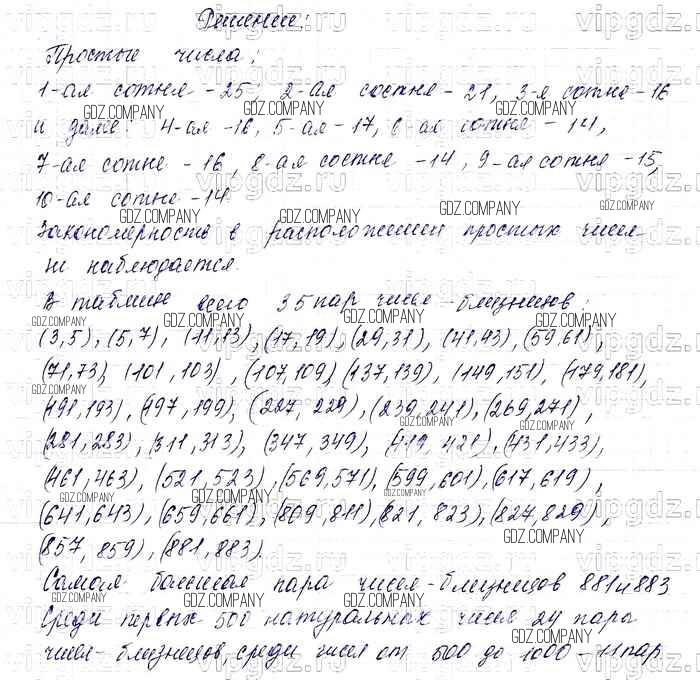 Решение:
Простые числа:
1-ая сотня - 25, 2-ая состня - 21, 3-я сотня - 16
и далее 4-ая - 16, 5-ая - 17, 6-ая сотня - 14,
7-ая сотня - 16, 8-ая состня - 14, 9-ая сотня - 15,
10-ая сотня - 14
Закономерность в расположении простых чисел
не наблюдается.
В таблице всего 35 пар чисел-близнецов:
(3,5), (5,7), (11,13), (17,19), (29,31), (41,43), (59,61),
(71,73), (101,103), (107,109), (137,139), (149,151), (179,181),
(191,193), (197,199), (227,229), (239,241), (269,271),
(281,283), (311,313), (347,349), (419,421), (431,433),
(461,463), (521,523), (569,571), (599,601), (617,619),
(641,643), (659,661), (809,811), (821,823), (827,829),
(857,859), (881,883).
Самая большая пара чисел-близнецов 881 и 883
Среди первых 500 натуральных чисел 24 пары
чисел-близнецов, среди чисел от 500 до 1000 - 11 пар
vipgdz.ru
GDZ.COMPANY